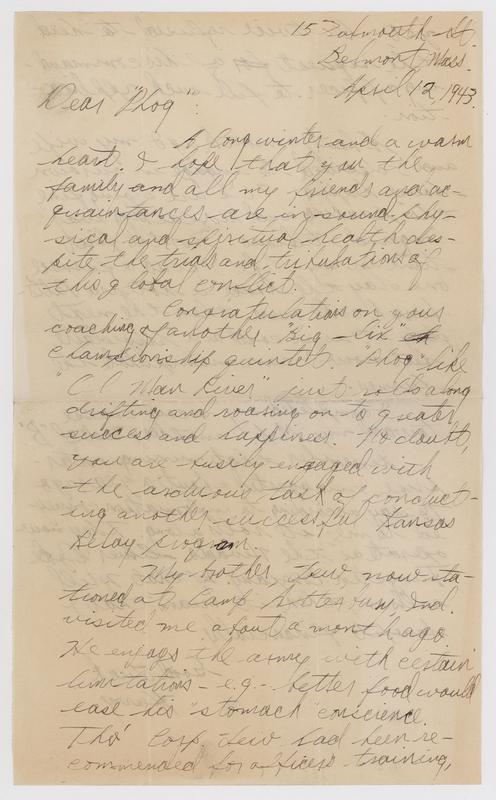 15 Falmouth St.
Belmont, Mass.
April 12, 1943.
Dear "Phog":
A long winter and a warm
heart. I hope that you the
family and all my friends and ac-
quaintances are in sound phy-
sical and spiritual health des-
pite the trials and tribulations of
this global conflict.
Congratulations on your
coaching of another "Big-Six"
championship quintet. "Phog" like
"Ol Man River" just rolls along
drifting and roaring on to greater
success and happiness. No doubt,
you are busily engaged with
the arduous task of conduct-
ing another successful Kansas
Relay program.
My brother, Lew now sta-
tioned at Camp Atterbury Ind.
visited me about a month ago.
He enjoys the army with certain
limitations - e.g. - better food would
ease his "stomach" conscience.
Tho' Corp. Lew had been re-
commended for officers training,